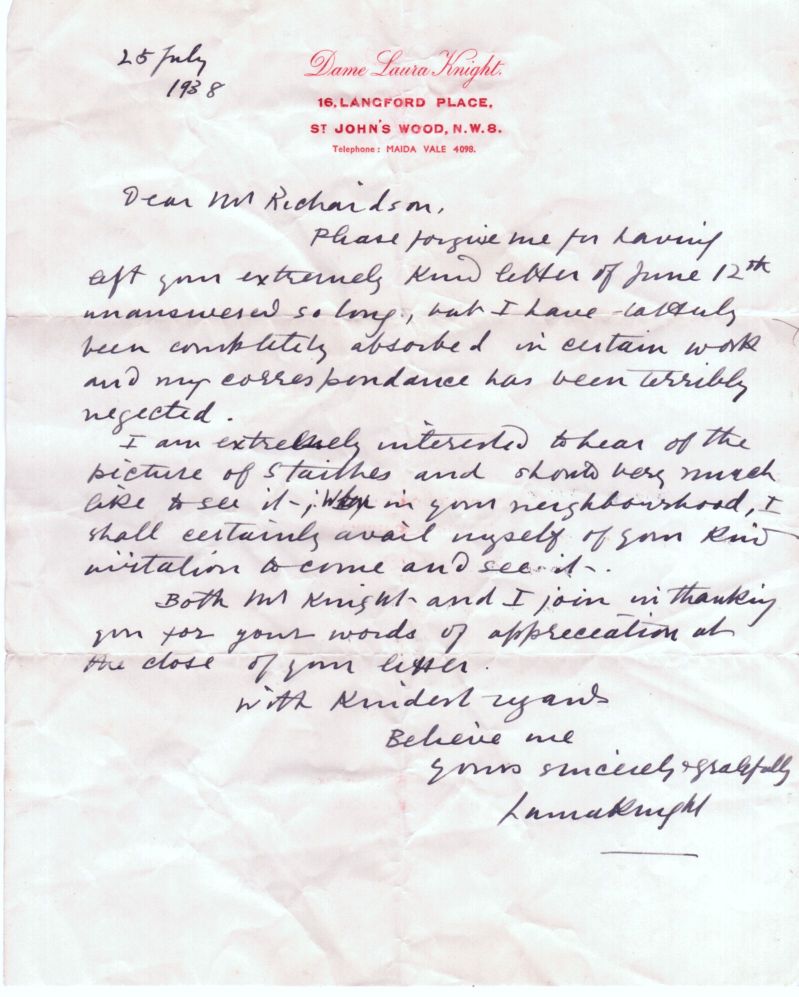 25 July
1938
Dame Laura Knight.
16, LANGFORD PLACE,
ST JOHN'S WOOD, N.W.8.
Telephone: MAIDA VALE 4098.
Dear Mr Richardson,
Please forgive me for having
left your extremely kind letter of June 12th
unanswered so long, but I have latterly
been completely absorbed in certain work
and my correspondance has been terribly
neglected.
I am extremely interested to hear of the
picture of Staithes and should very much
like to see it; When in your neighbourhood, I
shall certainly avail myself of your kind
invitation to come and see it.
Both Mr Knight and I join in thanking
you for your words of appreciation at
the close of your letter.
With kindest regards
Believe me
yours sincerely & gratefully
Laura Knight